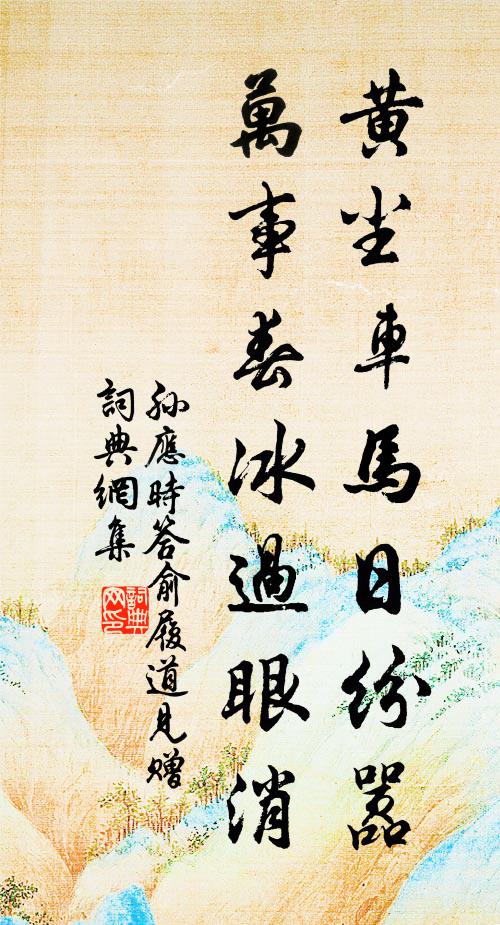 黄尘車馬日紛嚣
萬事春冰過眼消
孫應時答俞履道見赠
詞典網集
詞典
网印